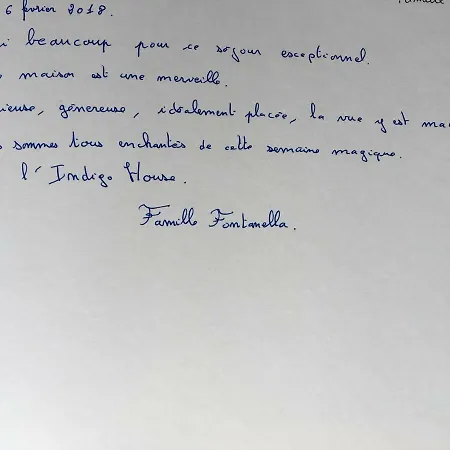 6 février 2018.
beaucoup pour ce séjour exceptionnel.
maison est une merveille.
génereuse, idéalement placée, la vue y est
sommes tous enchantés de cette semaine magique.
l'Indigo House.
Famille Fontanella.